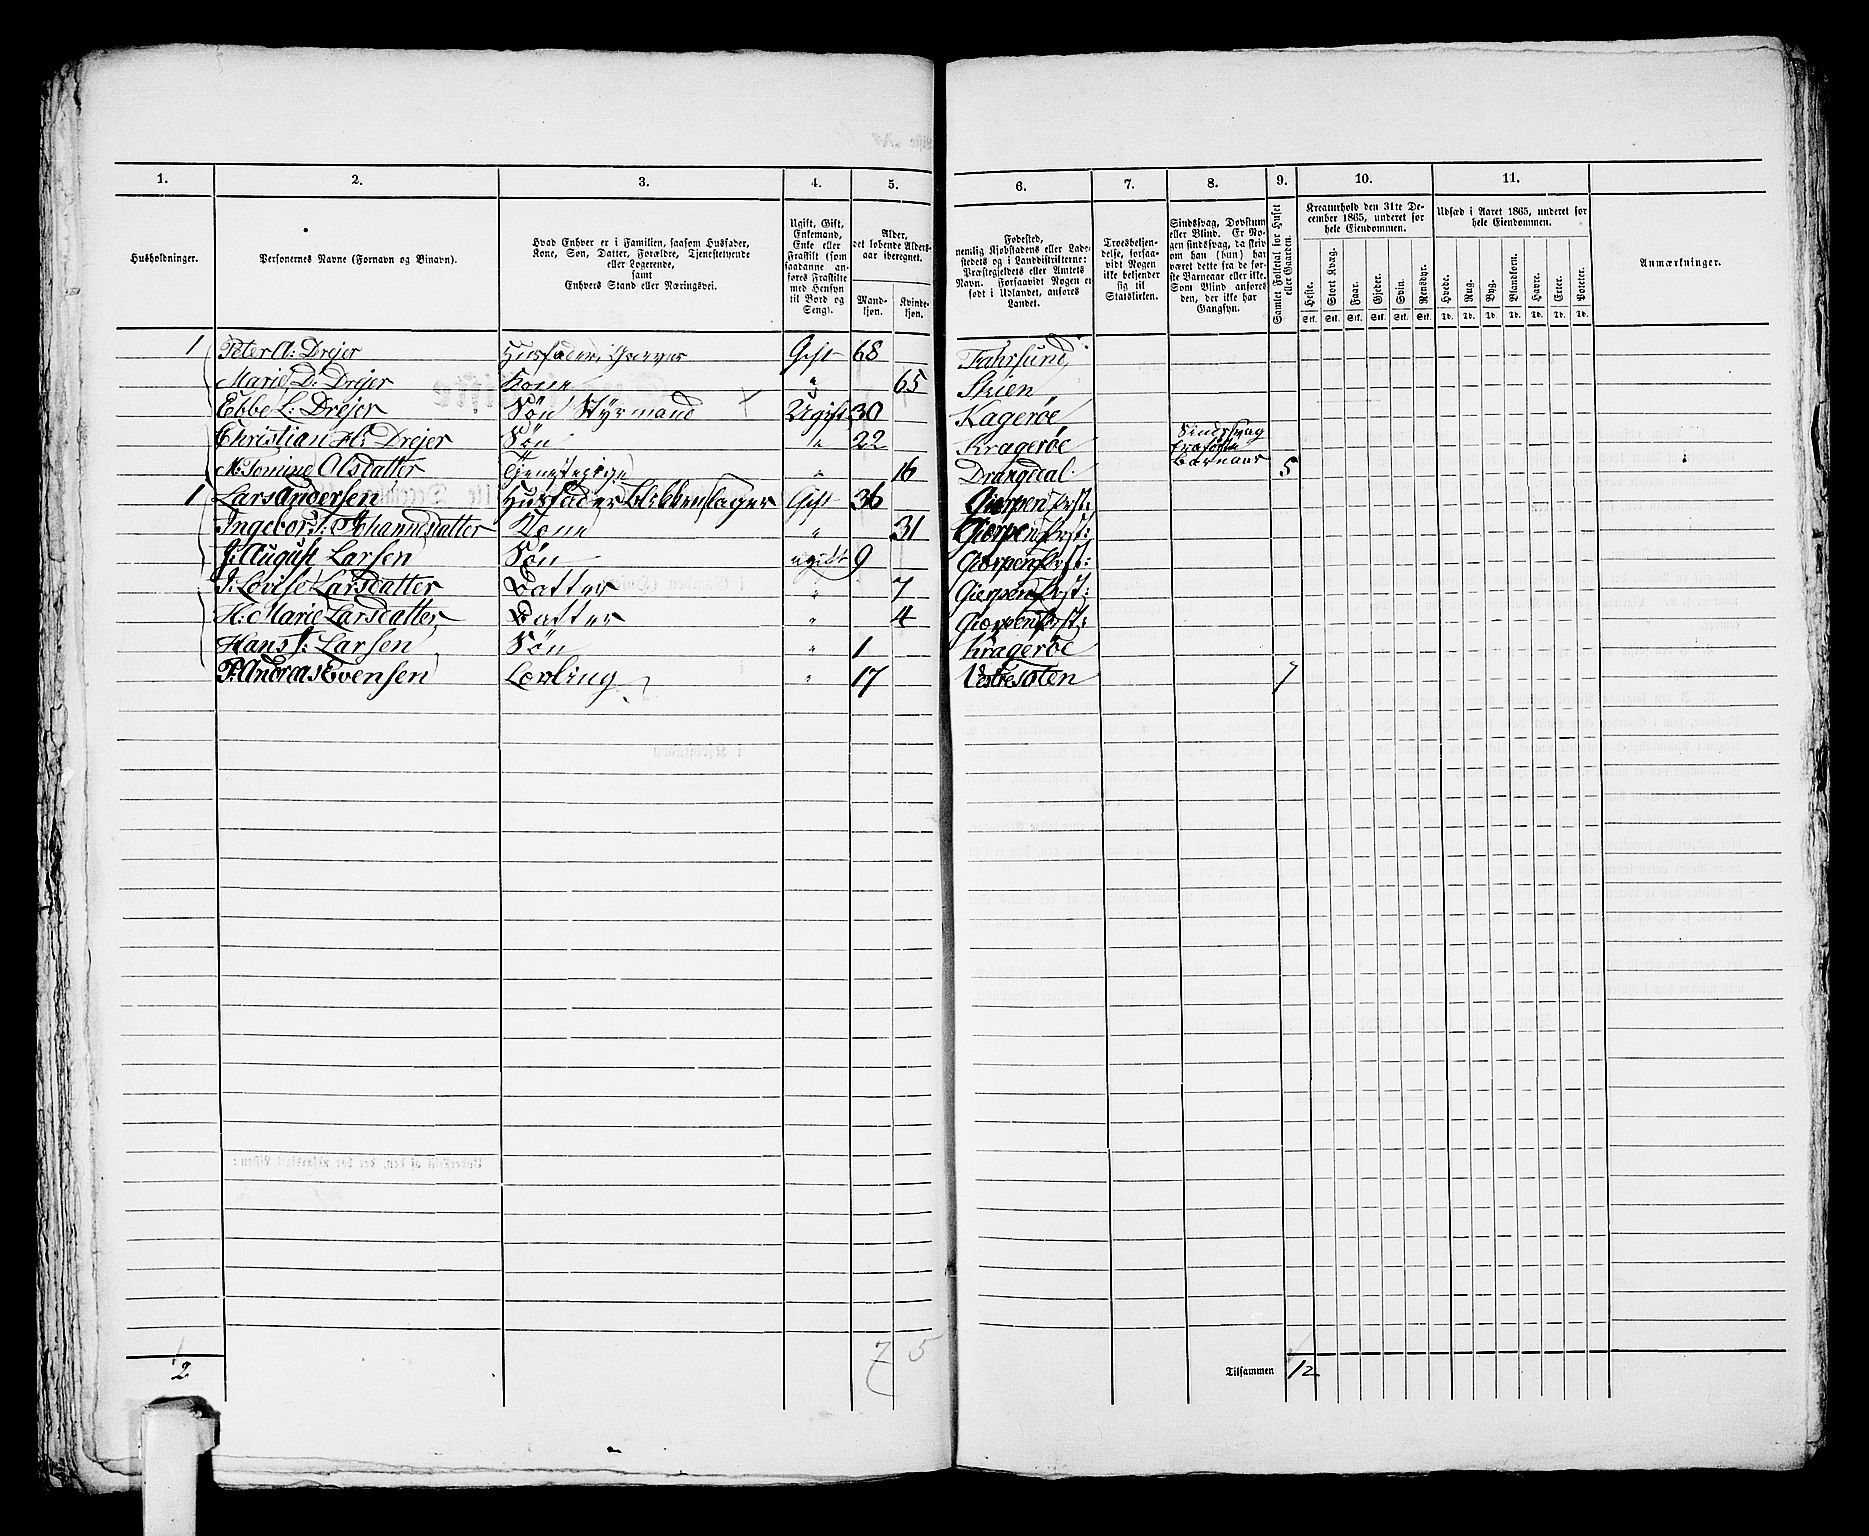 1. 2. 3. 4. 5. 6. 7. 8. 9. 10. 11.
Husholdninger.
Personernes Navne (Fornavn og Binavn).
Hvad Enhver er i Familien, saasom Husfader,
Kone, Søn, Datter, Forældre, Tjenestetyende
eller Logerende,
samt
Enhvers Stand eller Næringsvei.
Ugift, Gift,
Enkemand,
Enke eller
Fraskilt (som
saadanne an-
føres Fraskilte
med Hensyn
til Bord og
Seng).
Alder,
det løbende Alders-
aar iberegnet.
Mand-
kjøn.
Kvinde-
kjøn.
Fødested,
nemlig Kjøbstadens eller Lade-
stedets og i Landdistrikterne:
Præstegjeldets eller Amtets
Navn. Forsaavidt Nogen er
født i Udlandet, anføres
Landet.
Troesbekjen-
delse, forsaa-
vidt Nogen
ikke bekjender
sig til
Statskirken.
Sindssvag, Døvstum
eller Blind. Er No-
gen sindssvag, da skriv
om han (hun) har
været dette fra de før-
ste Barneaar eller ikke.
Som Blind anføres
den, der ikke har
Gangsyn.
Samlet Folketal for Huset
eller Gaarden.
Kreaturhold den 31te De-
cember 1865, underet for
hele Eiendommen.
Heste. Stort Kvæg. Faar. Gjeder. Svin. Rensdyr.
Stk. Stk. Stk. Stk. Stk. Stk.
Udsæd i Aaret 1865, underet for
hele Eiendommen.
Hvede. Rug. Byg. Blandkorn. Havre. Erter. Poteter.
Td. Td. Td. Td. Td. Td. Td.
Anmærkninger.
1 Peter A: Drejer Husfader Graver Gift 68 Fahrsund
Marie D. Drejer Kone " 65 Skien
Ebbe L: Drejer Søn Styrmand Ugift 30 Kagerøe
Christian H: Drejer Søn " 22 Kragerøe Sindssvag fra første Barneaar
M: Tomine Olsdatter Tjenestepige " 16 Drangdal 5
1 Lars Andersen Husfader Blikkenslager Gift 36 Gierpen Prst:
Ingebor J: Johannsdatter Kone " 31 Gierpens Prst:
J: August Larsen Søn ugift 9 Gierpens Prst:
J: Lovise Larsdatter Datter " 7 Gierpens Prst:
H: Marie Larsdatter Datter " 4 Gierpens Prst:
Hans J: Larsen Søn " 1 Kragerøe
P: Andreas Evensen Lærling " 17 Vestretoten 7
2 7 5 Tilsammen 12